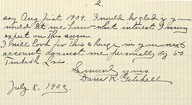 2.
say Aug 1st 1909. I would be glad if you
would let me know what interest I may
expect on this sum.
I will look for this charge in your next
account against me, personally, by 50
Turkish Liras.
Sincerely yours,
R. Mitchell
July 8, 1909